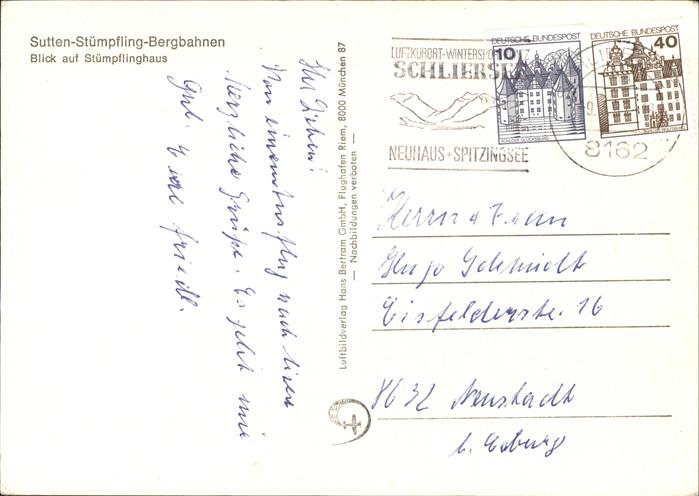 Sutten-Stümpfling-Bergbahnen
Blick auf Stümpflinghaus
Ihr Lieben!
Von einem Ausflug nach hier
herzliche Grüße. Es geht mir
Gut. Eure Friedl.
Luftbildverlag Hans Bertram GmbH, Flughafen Riem, 8000 München 87
— Nachbildungen verboten —
LUFTKURORT-WINTERSPORTPLATZ
SCHLIERSEE
NEUHAUS+SPITZINGSEE
DEUTSCHE BUNDESPOST
10
SCHLOSS GLÜCKSBURG
DEUTSCHE BUNDESPOST
40
8162
Herrn u Frau
Hugo Schmidt
Eisfelderstr. 16
8632 Neustadt
b. Coburg